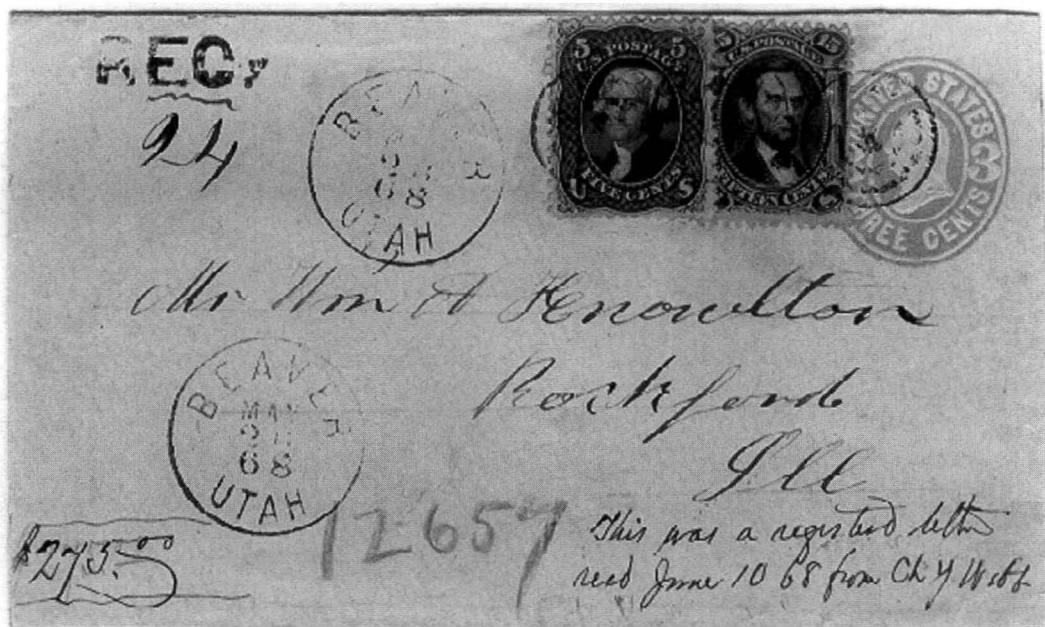 REG
24
BEAVER
68
UTAH
5 U.S. POSTAGE 5
FIVE CENTS
U.S. POSTAGE 15
FIFTEEN CENTS
UNITED STATES
3
THREE CENTS
Mr Wm A Knowlton
Rockford
Ill
BEAVER
MAY
68
UTAH
$275.00
12657
This was a registerd letter
recd June 10 68 from Ch Y Webb